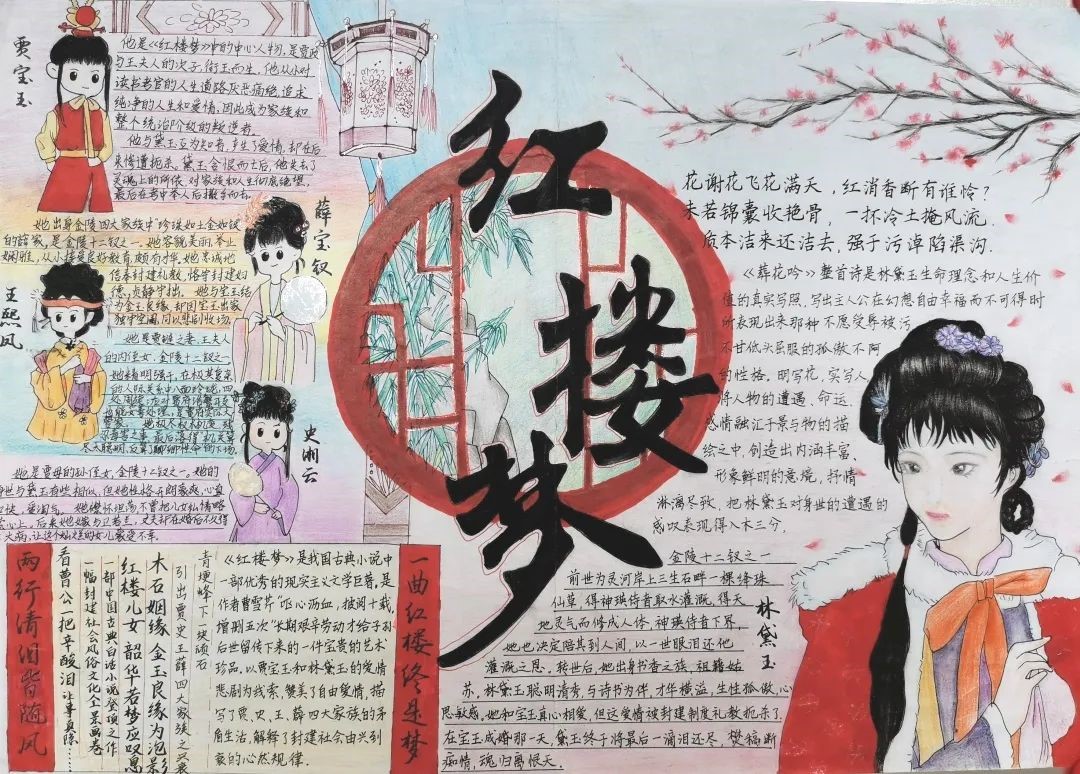 红楼梦
贾宝玉
他是《红楼梦》中的中心人物,是贾政
与王夫人的次子,衔玉而生,他从小对
读书考官的人生道路厌恶痛绝,追求
纯净的人生和爱情,因此成为家族和
整个统治阶级的叛逆者。
他与黛玉互为知音,产生爱情,却在后
来惨遭扼杀,黛玉含恨而去后,他失去了
灵魂上的所依,对家族和人生彻底绝望,
最后在考中举人后撒手而去
薛宝钗
她出身金陵四大家族中"珍珠如土金如铁
的薛家,是金陵十二钗之一,她容貌美丽,举止
娴雅,从小接受良好教育,颇有才华,她忠诚地
信奉封建礼教,恪守封建妇
德,贞静守拙。她与宝玉结
为金玉良缘,却因宝玉出家
独守空闺,而以悲剧收场
王熙凤
她是贾琏之妻,王夫人
的内侄女,金陵十二钗之一
她精明强干,在
史湘云
她是贾母的孙侄女,金陵十二钗之一。她的
身世与黛玉有些相似,但她性格开朗豪爽,心直
口快,爱淘气。
两行清泪皆随风
看曹公一把辛酸泪
一幅封建社会风俗文化全景画卷
一部中国古典白话小说登顶之作
红楼儿女韶华若梦应叹息
木石姻缘金玉良缘为泡影
引出贾史王薛四大家族之衰
青埂峰下一块顽石
《红楼梦》是我国古典小说中
一部优秀的现实主义文学巨著,是
作者曹雪芹"呕心沥血,披阅十载,
增删五次"长期艰辛劳动才给子孙
后世留传下来的一件宝贵的艺术
珍品,以贾宝玉和林黛玉的爱情
悲剧为线索,赞美了自由爱情,描
写了贾、史、王、薛四大家族的矛
盾生活,解释了封建社会由兴到
衰的必然规律.
一曲红楼终是梦
花谢花飞花满天,红消香断有谁怜?
未若锦囊收艳骨,一抔冷土掩风流.
质本洁来还洁去,强于污淖陷渠沟.
《葬花吟》整首诗是林黛玉生命理念和人生价
值的真实写照,写出主人公在幻想自由幸福而不可得时
所表现出来那种不愿受辱被污
不甘低头屈服的孤傲不阿
的性格。明写花,实写人
将人物的遭遇、命运、
感情融汇于景与物的描
绘之中,创造出内涵丰富、
形象鲜明的意境,抒情
淋漓尽致,把林黛玉对身世的遭遇的
感叹表现得入木三分,
林黛玉
金陵十二钗之一
前世为灵河岸上三生石畔一棵绛珠
仙草,得神瑛侍者取水灌溉,得天
地灵气而修成人体,神瑛侍者下界,
她也决定陪其到人间,以一世眼泪还他
灌溉之恩。转世后,她出身书香之族,祖籍姑
苏,林黛玉聪明清秀,与诗书为伴,才华横溢,生性孤傲,心
思敏感,她和宝玉真心相爱,但这爱情被封建制度礼教扼杀了.
在宝玉成婚那一天,黛玉终于将最后一滴泪还尽,焚稿断
痴情,魂归离恨天.